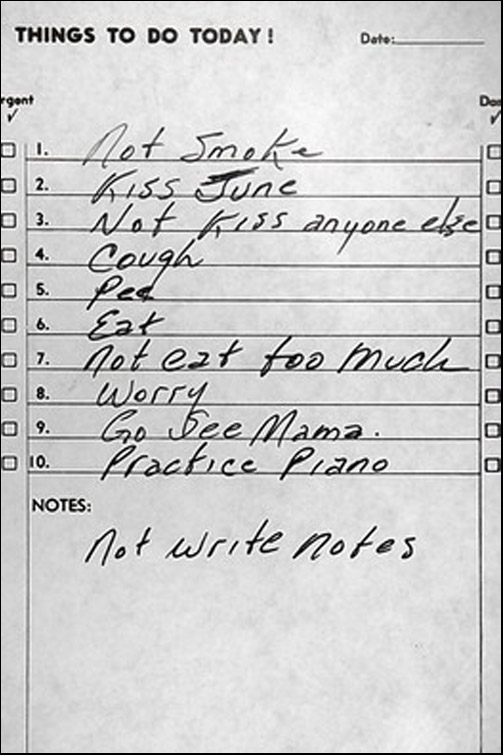 THINGS TO DO TODAY! Date:
rgent Don
1. Not Smoke
2. Kiss June
3. Not Kiss anyone else
4. Cough
5. Pee
6. Eat
7. Not eat too much
8. Worry
9. Go See Mama.
10. Practice Piano
NOTES:
Not write notes